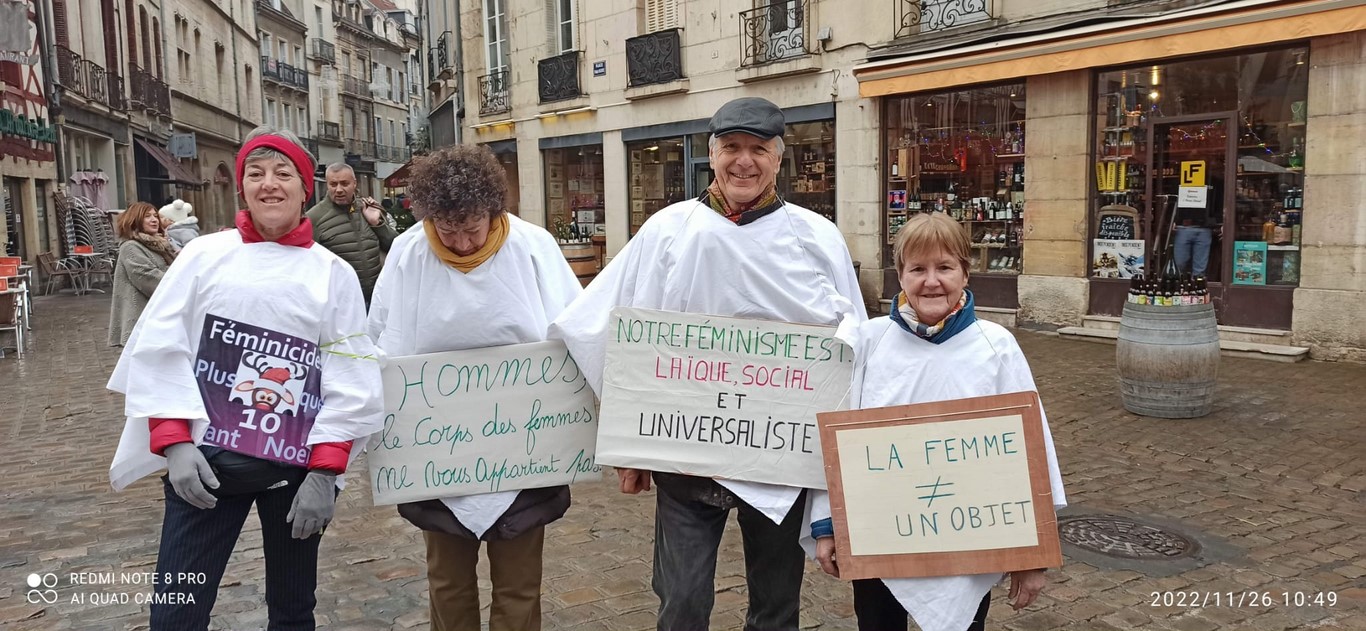 Féminicide
Plus que
10
ant Noë
Hommes,
le Corps des femmes
ne vous appartient pas
NOTRE FÉMINISME EST :
LAÏQUE, SOCIAL
ET
UNIVERSALISTE
LA FEMME
≠
UN OBJET
LF
REDMI NOTE 8 PRO
AI QUAD CAMERA
2022/11/26 10:49